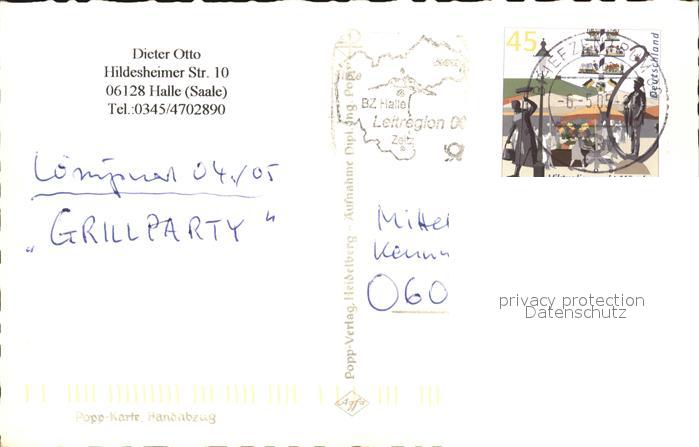 Dieter Otto
Hildesheimer Str. 10
06128 Halle (Saale)
Tel.:0345/4702890
04./05
"GRILLPARTY"
Popp-Verlag, Heidelberg - Aufnahme Dipl. Ing. Popp
Agfa
Popp-Karte, Handabzug
BZ Halle
Leitregion 06
Zeitz
45
Deutschland
BRIEFZENTRUM
-6.-5.05
Mittel
060
privacy protection
Datenschutz